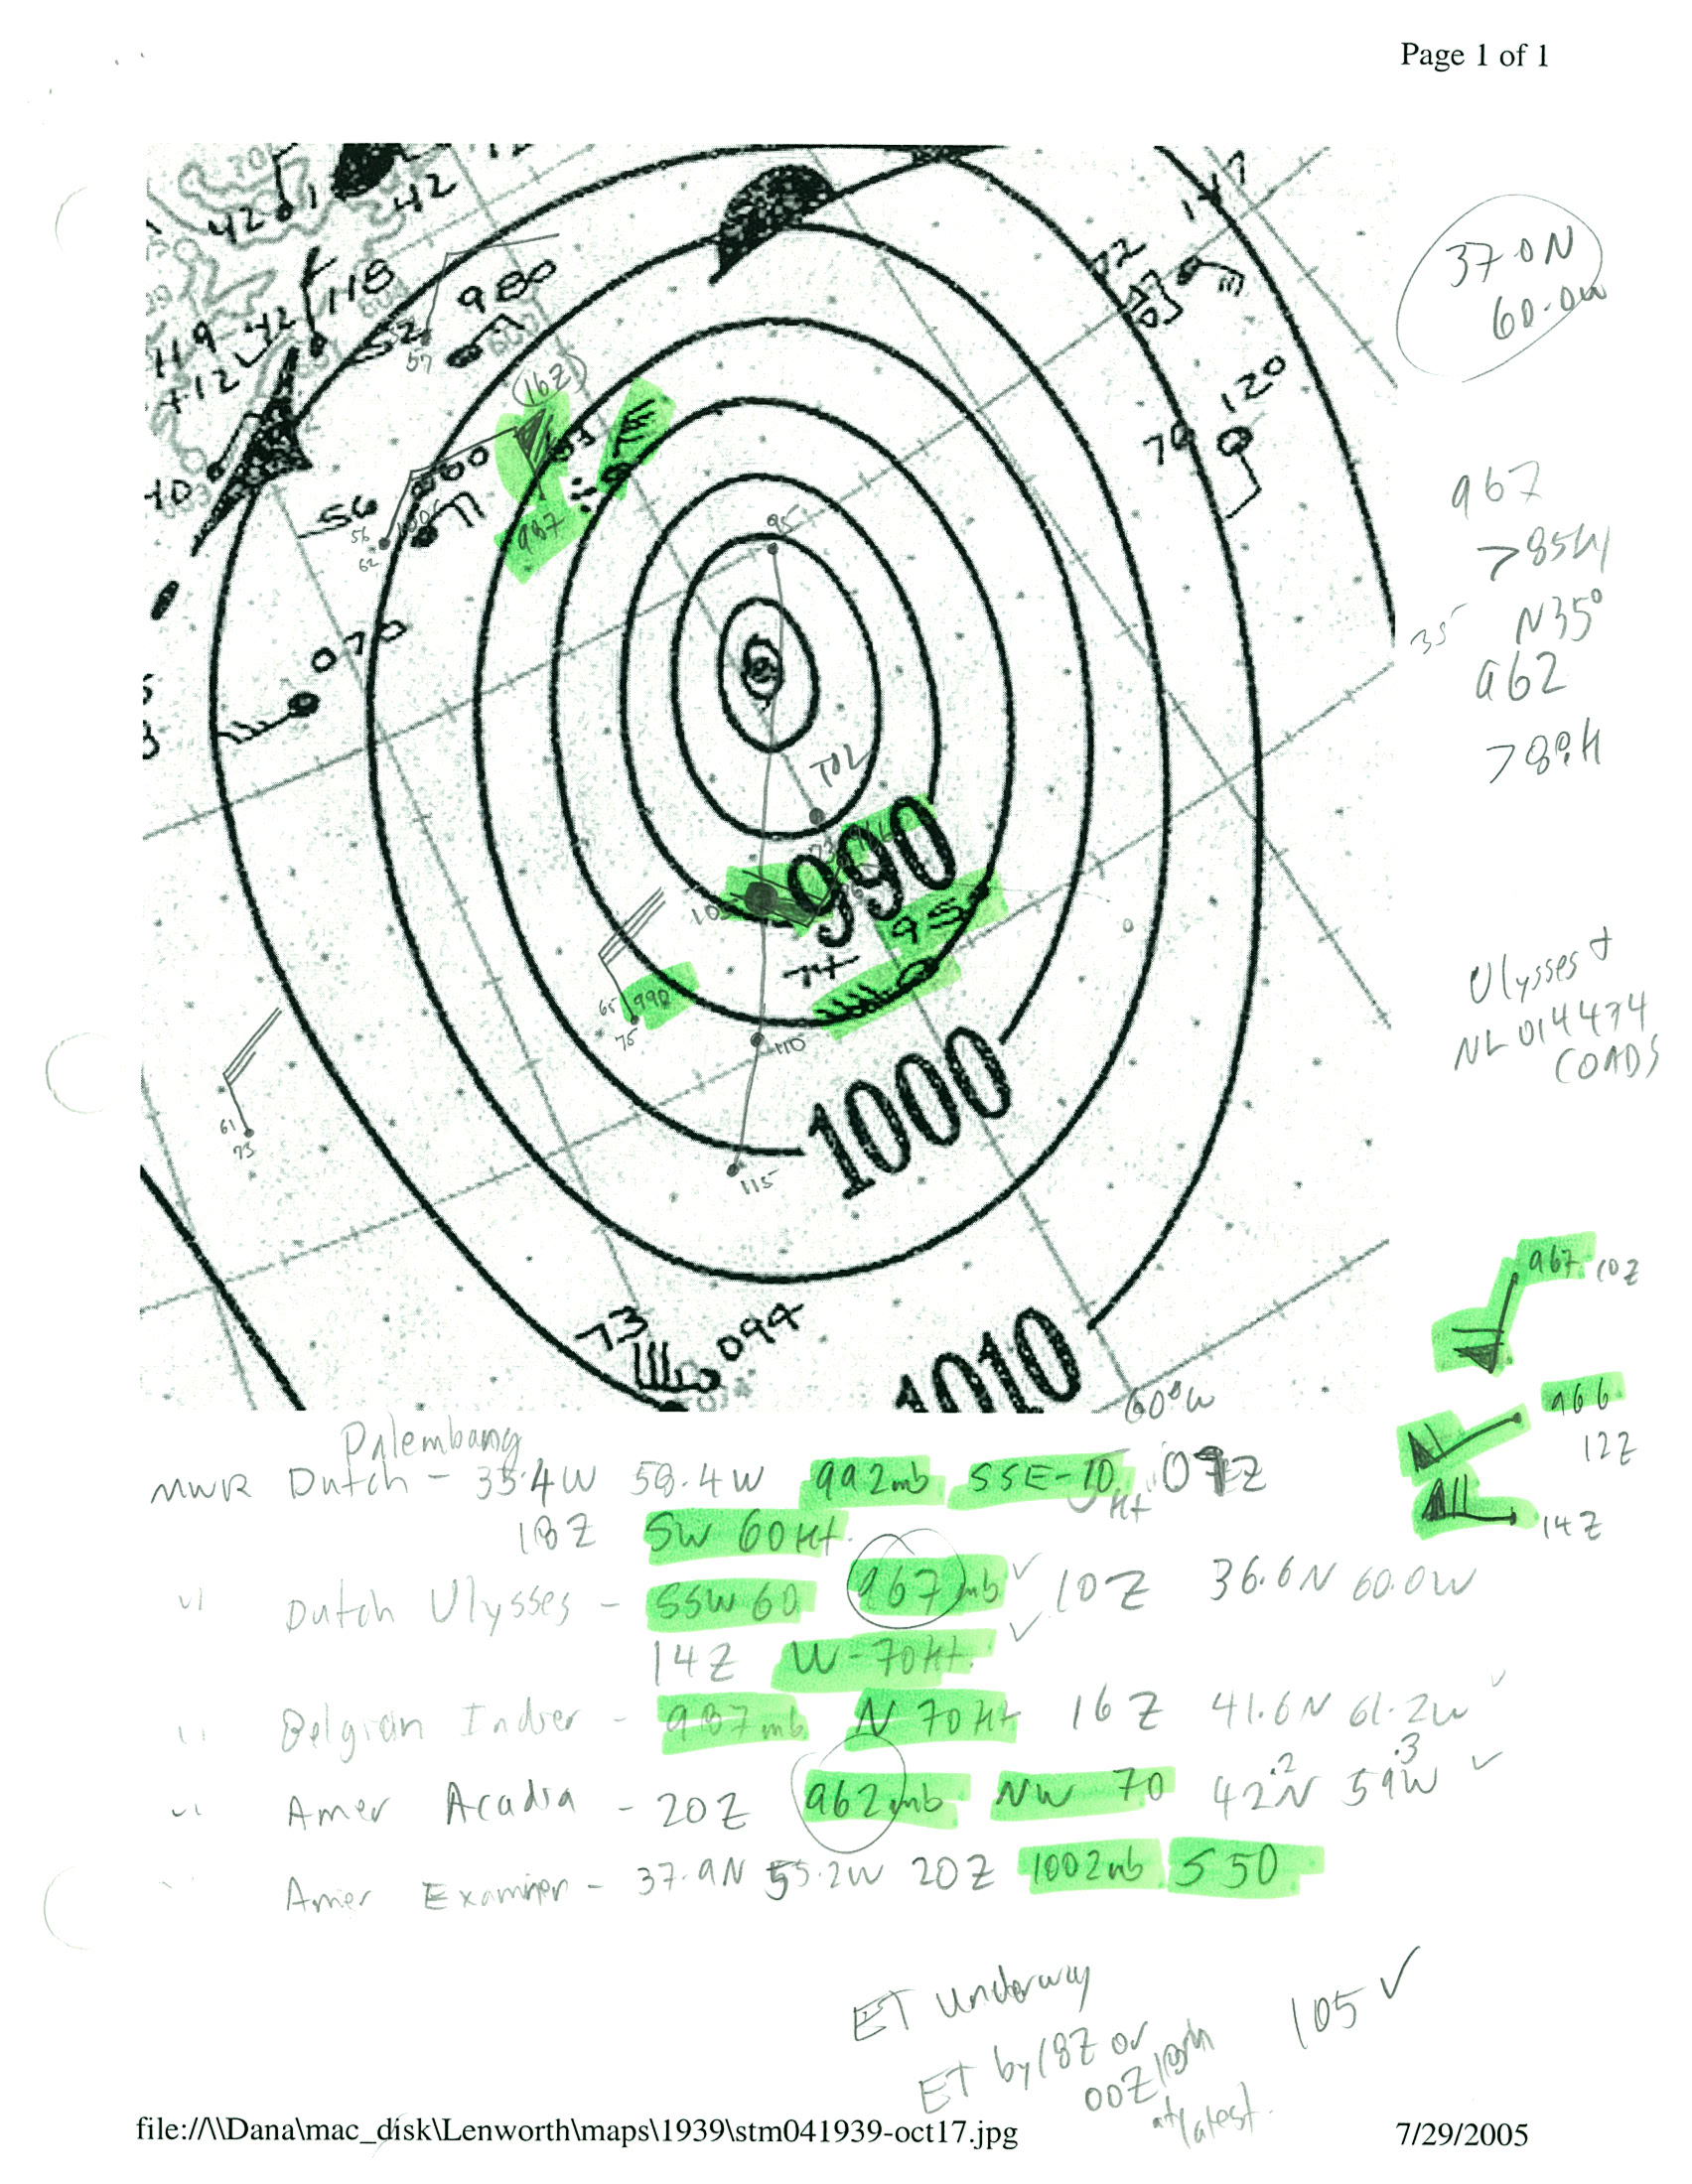 Page 1 of 1
42
42
118
980
52
57
119
42
+12
16Z
72
147
120
70
56
56
62
987
070
95
990
95
74
105
65
990
75
110
1000
115
61
73
73
094
1010
37.0N
60.0W
967
>85kt
35
N35°
962
>89kt
Ulysses &
NL 014474
COADS
967 10Z
966
12Z
14Z
60°W
Palembang
MWR Dutch - 35.4W 58.4W 992mb SSE-10 07Z
Ht
18Z SW 60Ht.
" Dutch Ulysses - SSW 60 967mb ✓ 10Z 36.6N 60.0W
14Z W-70Ht. ✓
" Belgian Indier - 987mb N 70Ht 16Z 41.6N 61.2W ✓
" Amer Acadia - 20Z 962mb NW 70 42.2N 59.3W ✓
" Amer Examiner - 37.9N 55.2W 20Z 1002mb S 50
ET underway
105 ✓
ET by 18Z or
00Z 18th
at latest.
file://\\Dana\mac_disk\Lenworth\maps\1939\stm041939-oct17.jpg 7/29/2005